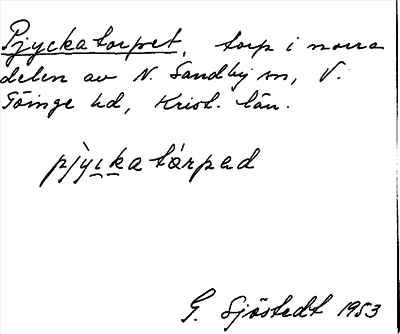 Pjyckatorpet, torp i norra
delen av N. Sandby sn, V.
Göinge hd, Krist. län.
pjỳkatårpad
G. Sjöstedt 1953